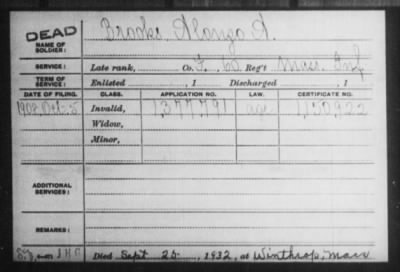 DEAD
NAME OF SOLDIER: Brooks, Alonzo A.
SERVICE: Late rank, Co. F, 60 Reg't Mass. Inf
TERM OF SERVICE: Enlisted , 1 Discharged , 1
DATE OF FILING. CLASS. APPLICATION NO. LAW. CERTIFICATE NO.
Invalid, 1,377,791
Widow,
Minor,
ADDITIONAL SERVICES:
REMARKS:
Died Sept 25 , 1932, at Winthrop, Mass